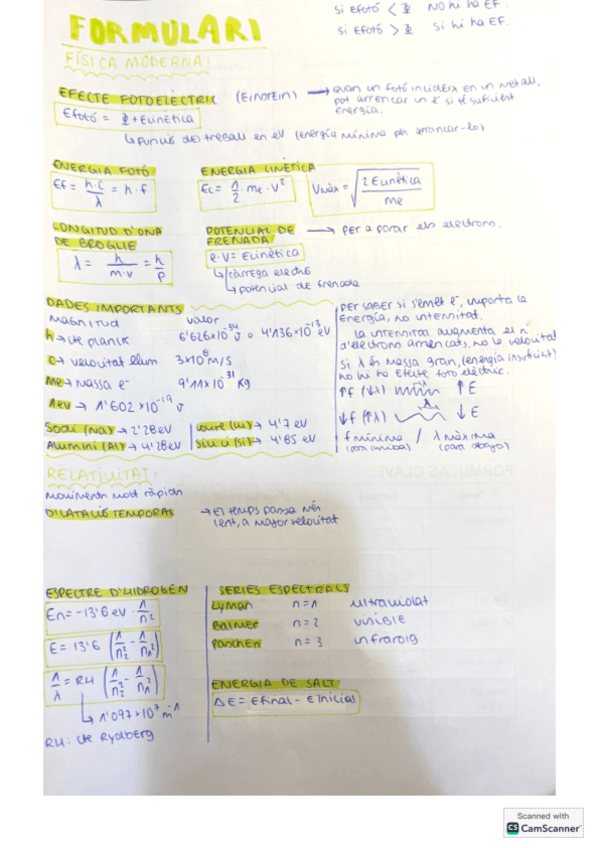 si Efotó < Φ NO hi ha EF.
si Efotó > Φ si hi ha EF.
FORMULARI
FÍSICA MODERNA:
EFECTE FOTOELÈCTRIC (EINSTEIN) → quan un fotó incideix en un metall,
pot arrencar un e⁻ si té suficient
energia.
Efotó = Φ + Ecinètica
↳ Funció del treball en eV (energia mínima per arrancar-lo)
ENERGIA FOTÓ
Ef = h·c/λ = h·f
ENERGIA CINÈTICA
Ec = 1/2 · me · v²
Vmàx = √(2 Ecinètica / me)
LONGITUD D'ONA
DE BROGLIE
λ = h/m·v = h/p
POTENCIAL DE
FRENADA
→ per a parar els electrons.
e·V = Ecinètica
↳ càrrega electró
↳ potencial de frenada
DADES IMPORTANTS
Magnitud valor
h → cte planck 6'626×10⁻³⁴ J o 4'136×10⁻¹⁵ eV
c → velocitat llum 3×10⁸ m/s
me → massa e⁻ 9'11×10⁻³¹ kg
1eV → 1'602×10⁻¹⁹ J
Sodi (Na) → 2'28eV
Coure (Cu) → 4'7 eV
Alumini (Al) → 4'28eV
Silici (Si) → 4'85 eV
per saber si s'emet e⁻, importa la
Energia, no intensitat.
la intensitat augmenta el nº
d'electrons arrencats, no le velocitat
Si λ és massa gran, (energia insuficient)
no hi ha Efecte foto elèctric.
↑f (↓λ) ↑E
↓f (↑λ) ↓E
f mínima / λ màxima
(para arriba) (para abajo)
RELATIVITAT:
moviments molt ràpids
DILATACIÓ TEMPORAL → El temps passa més
lent, a major velocitat
ESPECTRE D'HIDROGEN
En = -13'6 eV · 1/n²
E = 13'6 (1/n₂² - 1/n₁²)
1/λ = RH (1/n₂² - 1/n₁²)
↳ 1'097×10⁷ m⁻¹
RH: cte Rydberg
SERIES ESPECTRALS
Lyman n=1 ultraviolat
Balmer n=2 visible
Paschen n=3 infraroig
ENERGIA DE SALT
ΔE = Efinal - Einicial
Scanned with
CS CamScanner